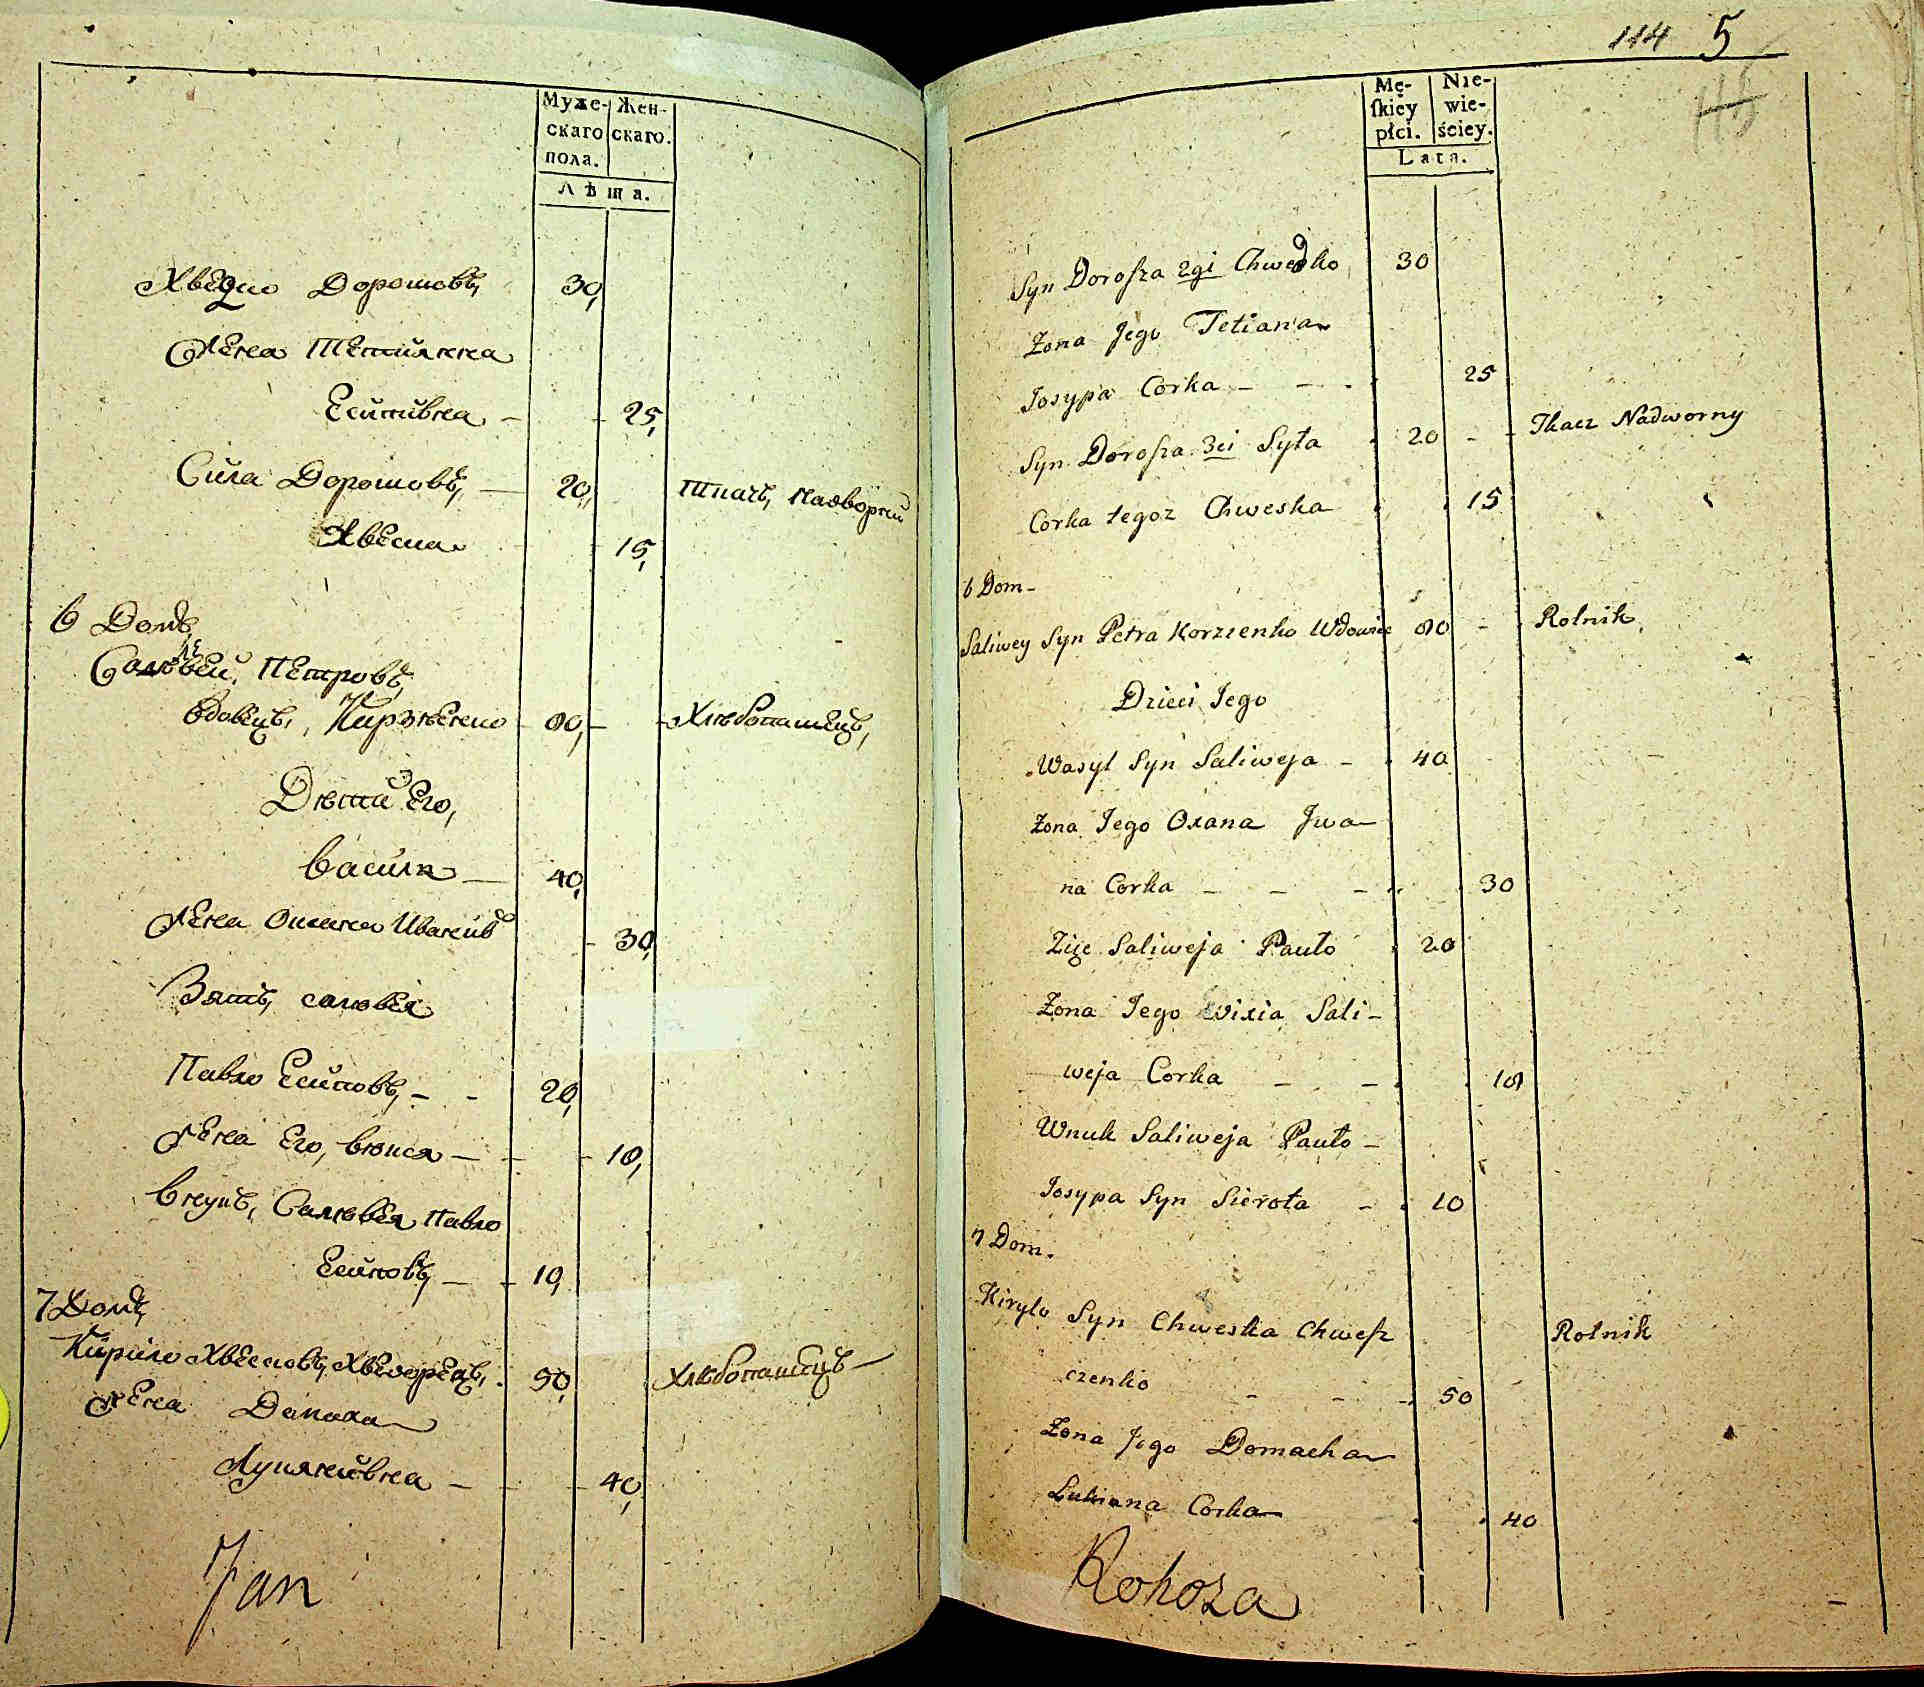 Муже-
скаго
пола.
Жен-
скаго.
Лѣта.
Хведко Дорошовъ, 30,
Жена Тетиянна
Есипивна - 25,
Сила Дорошовъ, - 20, Ткачъ, Надворний
Хвеска 15,
6 Домъ,
Саливей, Петровъ,
вдовецъ, Кирзѣенко - 80, - Хлѣбопашецъ,
Дѣти Его,
Василь - 40,
Жена Оксана Иванивъ - 30,
Зять, саливея
Павло Есиповъ, - - 20,
Жена Его, Вився - - - 18,
Внукъ, Саливея Павло
Есиповъ, - - 10,
7 Домъ,
Кирило Хвесковъ, 50, Хлѣбопашецъ -
Жена Домаха
Лукянивна - - - 40,
Jan
114 5
115
Mę-
skiey
płci.
Nie-
wie-
ściey.
Lata.
Syn Dorosza 2gi Chwedko 30
Zona Jego Tetiana
Josypa Corka - - - 25
Syn Dorosza 3ci Syła 20 - - Tkacz Nadworny
Corka tegoz Chweska 15
6 Dom -
Saliwey Syn Petra Korzienko Wdowiec 80 - - Rolnik
Dzieci Jego
Wasyl Syn Saliweja - 40
Zona Jego Oxana Jwa-
na Corka - - - 30
Zięc Saliweja Pauło 20
Zona Jego Wixia Sali-
weja Corka - - 18
Wnuk Saliweja Pauło -
Josypa Syn Sierota - 10
7 Dom.
Kiryło Syn Chweska Chwesz
czenko - - 50 Rolnik
Zona Jego Domacha
Lukiana Corka 40
Rohoza